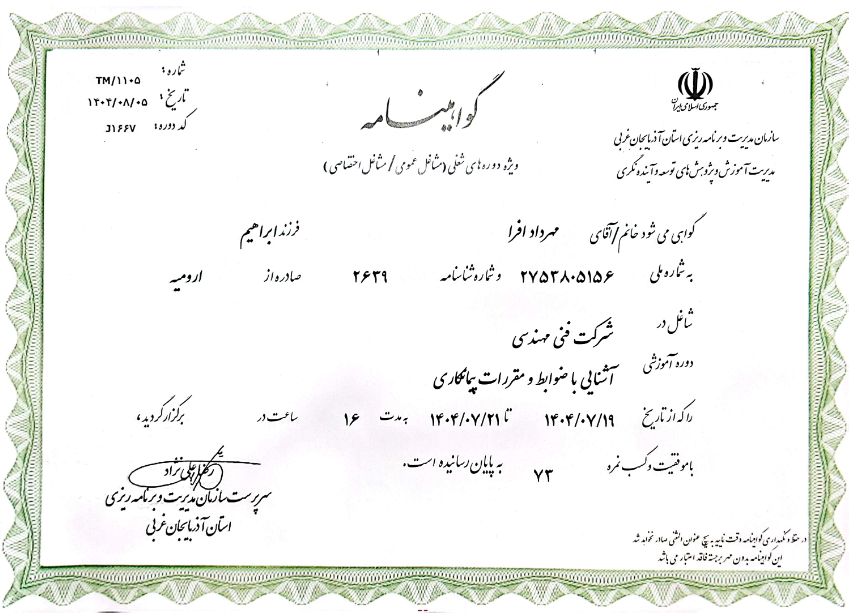 شماره: TM/۱۱۰۵
تاریخ: ۱۴۰۴/۰۸/۰۵
کد دوره: J۱۶۶۷
جمهوری اسلامی ایران
سازمان مدیریت و برنامه ریزی استان آذربایجان غربی
مدیریت آموزش و پژوهش های توسعه و آینده نگری
گواهینامه
ویژه دوره های شغلی (مشاغل عمومی / مشاغل اختصاصی)
گواهی می شود خانم/آقای مهرداد افرا فرزند ابراهیم
به شماره ملی ۲۷۵۳۸۰۵۱۵۶ و شماره شناسنامه ۲۶۳۹ صادره از ارومیه
شاغل در شرکت فنی مهندسی
دوره آموزشی آشنایی با ضوابط و مقررات پیمانکاری
را که از تاریخ ۱۴۰۴/۰۷/۱۹ تا ۱۴۰۴/۰۷/۲۱ به مدت ۱۶ ساعت در برگزار گردید،
با موفقیت و کسب نمره ۷۳ به پایان رسانیده است.
علی نژاد
سرپرست سازمان مدیریت و برنامه ریزی
استان آذربایجان غربی
در حفظ و نگهداری گواهینامه دقت نمایید به هیچ عنوان المثنی صادر نخواهد شد
این گواهینامه بدون مهر برجسته فاقد اعتبار می باشد